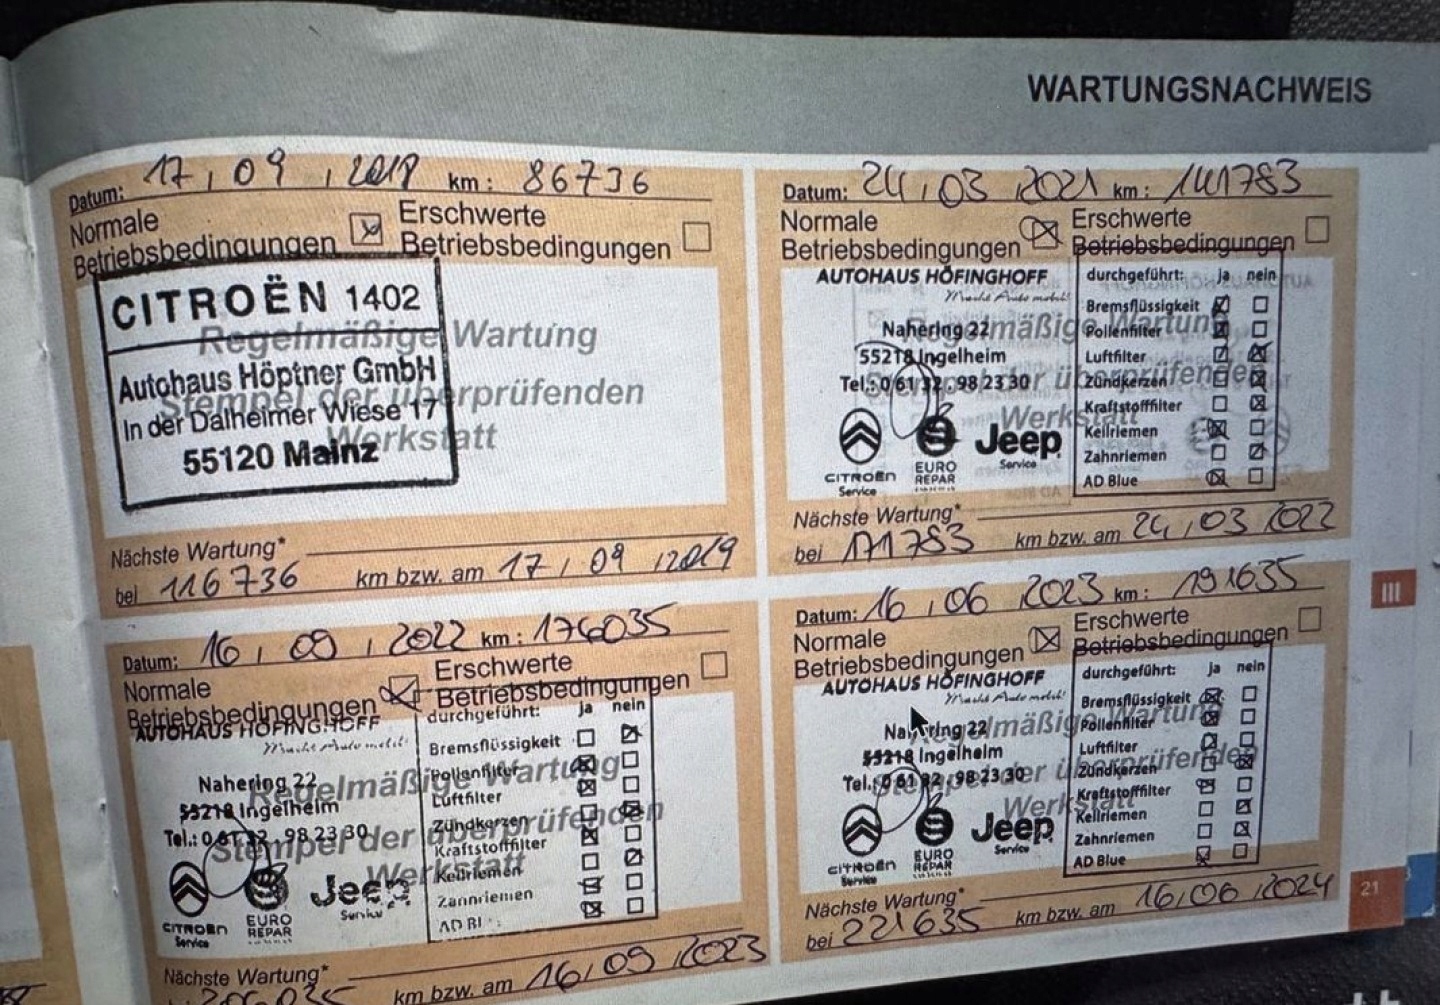 WARTUNGSNACHWEIS
Datum: 17, 09, 2018 km: 86736
Normale
Betriebsbedingungen
Erschwerte
Betriebsbedingungen
CITROËN 1402
Autohaus Höptner GmbH
In der Dalheimer Wiese 17
55120 Mainz
Regelmäßige Wartung
Stempel der überprüfenden
Werkstatt
Nächste Wartung*
bei 116736 km bzw. am 17, 09, 2019
Datum: 24, 03, 2021 km: 141783
Normale
Betriebsbedingungen
Erschwerte
Betriebsbedingungen
AUTOHAUS HÖFINGHOFF
Macht Auto mobil!
Nahering 22
55218 Ingelheim
Tel.: 0 61 32 . 98 23 30
CITROËN
Service
EURO
REPAR
Jeep
Service
durchgeführt: ja nein
Bremsflüssigkeit
Pollenfilter
Luftfilter
Zündkerzen
Kraftstofffilter
Keilriemen
Zahnriemen
AD Blue
Regelmäßige Wartung
Stempel der überprüfenden
Werkstatt
Nächste Wartung*
bei 171783 km bzw. am 24, 03, 2022
Datum: 16, 09, 2022 km: 176035
Normale
Betriebsbedingungen
Erschwerte
Betriebsbedingungen
AUTOHAUS HÖFINGHOFF
Macht Auto mobil!
Nahering 22
55218 Ingelheim
Tel.: 0 61 32 . 98 23 30
CITROËN
Service
EURO
REPAR
Jeep
Service
durchgeführt: ja nein
Bremsflüssigkeit
Pollenfilter
Luftfilter
Zündkerzen
Kraftstofffilter
Keilriemen
Zahnriemen
AD Bl
Regelmäßige Wartung
Stempel der überprüfenden
Werkstatt
Nächste Wartung*
206035 km bzw. am 16, 09, 2023
Datum: 16, 06, 2023 km: 191635
Normale
Betriebsbedingungen
Erschwerte
Betriebsbedingungen
AUTOHAUS HÖFINGHOFF
Macht Auto mobil!
Nahering 22
55218 Ingelheim
Tel.: 0 61 32 . 98 23 30
CITROËN
Service
EURO
REPAR
Jeep
Service
durchgeführt: ja nein
Bremsflüssigkeit
Pollenfilter
Luftfilter
Zündkerzen
Kraftstofffilter
Keilriemen
Zahnriemen
AD Blue
Regelmäßige Wartung
Stempel der überprüfenden
Werkstatt
Nächste Wartung*
bei 221635 km bzw. am 16, 06, 2024
III
21